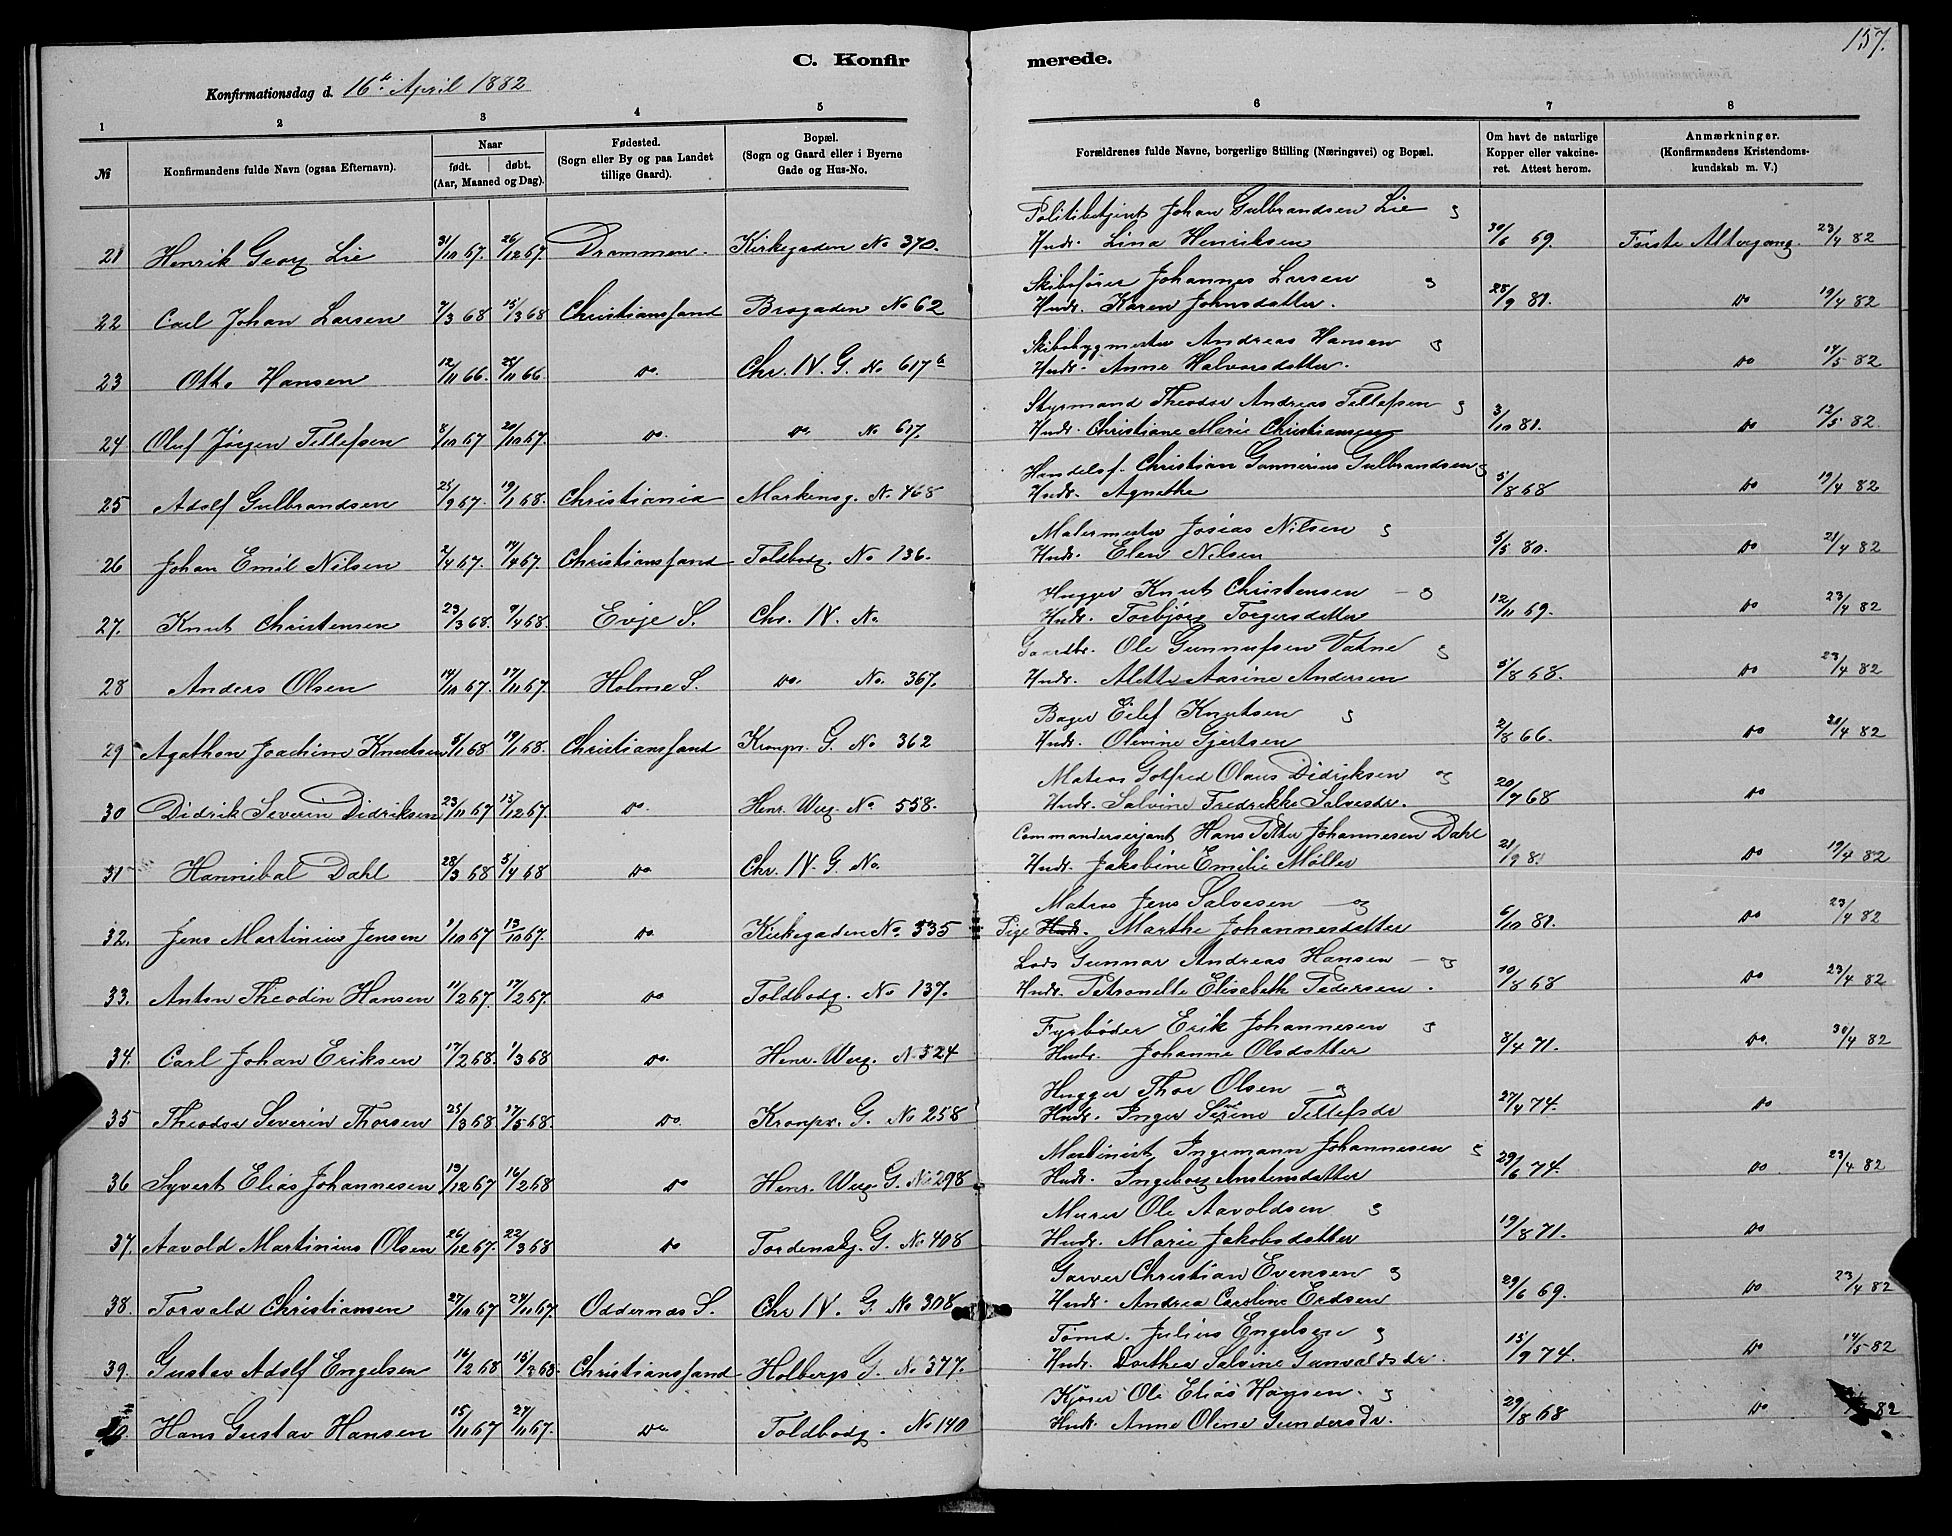 157.
C. Konfirmerede.
Konfirmationsdag d. 16de April 1882
1 2 3 4 5 6 7 8
№ Konfirmandens fulde Navn (ogsaa Efternavn). Naar født. døbt. (Aar, Maaned og Dag). Fødested. (Sogn eller By og paa Landet tillige Gaard). Bopæl. (Sogn og Gaard eller i Byerne Gade og Hus-No. Forældrenes fulde Navne, borgerlige Stilling (Næringsvei) og Bopæl. Om havt de naturlige Kopper eller vakcineret. Attest herom. Anmærkninger. (Konfirmandens Kristendomskundskab m. V.)
Politibetjent Johan Gulbrandsen Lie og
21 Henrik Georg Lie 31/10 67. 26/12 67 Drammen. Kirkegaden No 370. Hust. Lina Henriksen 30/6 69 Første Altergang. 23/4 82
Skibsfører Johannes Larsen og
22 Carl Johan Larsen 7/3 68 15/3 68 Christianssand Brogaden No 62 Hust. Karen Johnsdatter. 28/9 81. do 19/4 82
Skibsbygmester Andreas Hansen og
23 Otto Hansen 12/11 66. 25/11 66. do. Chr. IV. G. No 617b Hust. Anne Halvorsdatter. do 14/5 82
Styrmand Theodor Andreas Tellefsen og
24 Oluf Jørgen Tellefsen 8/10 67 20/10 67. do. do. No 617. Hust. Christiane Marie Christiansen 3/10 81. do 12/5 82.
Handelsf. Christian Gunnerius Gulbrandsen og
25 Adolf Gulbrandsen 25/9 67. 19/1 68. Christiania Markensg. No. 468 Hust. Agnethe 5/8 68 do 19/4 82
Malermester Josias Nilsen og
26 Johan Emil Nilsen 2/4 67. 14/4 67. Christianssand Toldbodg. No 136. Hust. Elen Nilsen 5/5 80. do 21/4 82
Hugger Knut Christensen - og
27. Knut Christensen 23/3 68. 9/4 68. Evje S. Chr. IV. No. Hust. Torbjørg Torgersdatter 12/11 69. do 23/4 82
Gaardbr. Ole Gunnufsen Vatne og
28 Anders Olsen 14/10 67. 17/11 67. Holme S. do. No. 367. Hust. Alette Aasine Andersen 5/8 68. do 23/4 82
Bager Eilef Knutsen og
29 Agathon Joachim Knutsen 5/1 68 19/1 68. Christianssand Kronpr. G. No 362 Hust. Olevine Gjertsen 2/8 66. do 30/4 82
Matros Gotfred Olaus Didriksen og
30 Didrik Severin Didriksen 23/11 67 15/12 67. do. Henr. Werg. No 558. Hust. Salvine Fredrikke Salvesdr. 20/7 68 do
Commandersergant Hans Petter Johannesen Dahl
31 Hannibal Dahl 28/3 68 5/4 68 do. Chr. IV. G. No. Hust. Jakobine Emilie Møller 21/9 8 do 19/4 82
Matros Jens Salvesen - og
32. Jens Martinius Jensen 1/10 67 13/10 67. do. Kirkegaden No. 335 Pige Hust. Marthe Johannesdatter 6/10 81. do 23/4 82
Lods Gunnar Andreas Hansen - og
33. Anton Theodin Hansen 11/2 67. 17/2 67. do Toldbodg. No 137. Hust. Petronelle Elisabeth Pedersen. 10/8 68 do 23/4 82
Fyrbøder Erik Johannesen og
34. Carl Johan Eriksen 17/2 68. 1/3 68 do. Henr. Werg. N. 524 Hust. Johanne Olsdatter 8/4 71. do. 30/4 82
Hugger Thor Olsen - og
35 Theodor Severin Thorsen 25/3 68. 17/5 68. do. Kronpr. G. No 258 Hust. Inger Sirine Tellefsdr 27/4 74. do
Maskinist Ingemann Johannesen og
36 Syvert Elias Johannesen 19/12 67 16/2 68 do Henr. Werg. G. No 298 Hust. Ingeborg Anstensdatter 29/6 74. do 23/4 82
Murer Ole Aavoldsen og
37. Aavold Martinius Olsen 26/12 67. 22/3 68 do Tordenskj. G. No 408 Hust. Marie Jakobsdatter 19/8 71. do
Garver Christian Evensen og
38. Torvald Christiansen 27/10 67 24/11 67. Oddernæs S. Chr IV. G. No 308 Hust. Andrea Caroline Erdsen 29/6 69. do 23/4 82
Tømd. Julius Engelsen og
39. Gustav Adolf Engelsen 14/2 68 15/3 68 Christianssand Holbergs G. No 377. Hust. Dorthea Salvine Gunvaldsdr. 15/9 74. do 14/5 82
Kjører Ole Elias Hansen. og
Hans Gustav Hansen 15/11 67 24/11 67. do Toldbodg. No 140 Hust. Anne Olene Gundersdr. 29/8 68 do 82